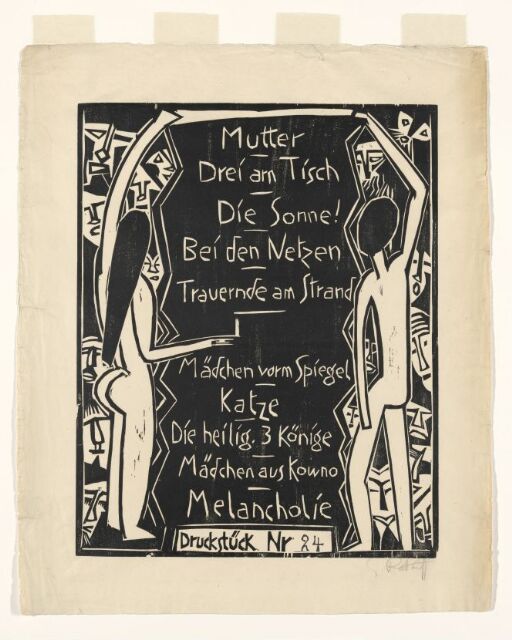 Mutter
Drei am Tisch
Die Sonne!
Bei den Netzen
Trauernde am Strand
Mädchen vorm Spiegel
Katze
Die heilig. 3 Könige
Mädchen aus Kowno
Melancholie
Druckstück Nr 24